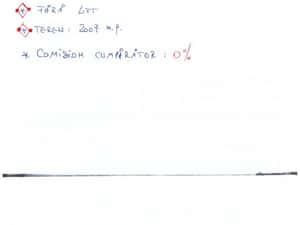 FĂRĂ LIFT
TEREN: 2007 m.p.
* COMISION CUMPĂRĂTOR: 0%